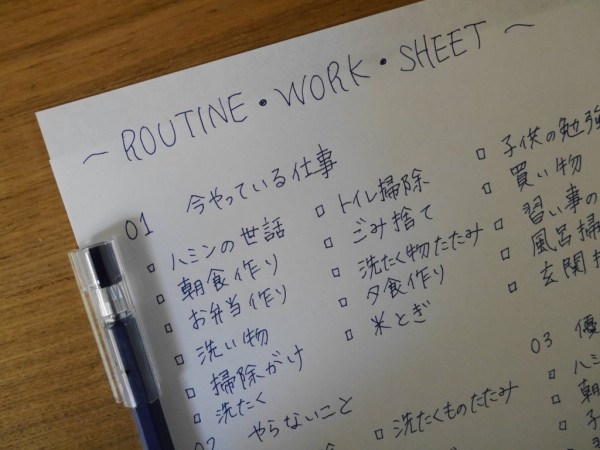 ~ ROUTINE・WORK・SHEET ~
01 今やっている仕事
□ ハミンの世話
□ 朝食作り
□ お弁当作り
□ 洗い物
□ 掃除がけ
□ 洗たく
□ トイレ掃除
□ ごみ捨て
□ 洗たく物たたみ
□ 夕食作り
□ 米とぎ
□ 子供の勉強
□ 買い物
□ 習い事の
□ 風呂掃
□ 玄関
02 やらないこと
□ 洗たくものたたみ
03 優
□ ハミ
□ 朝
□ 子